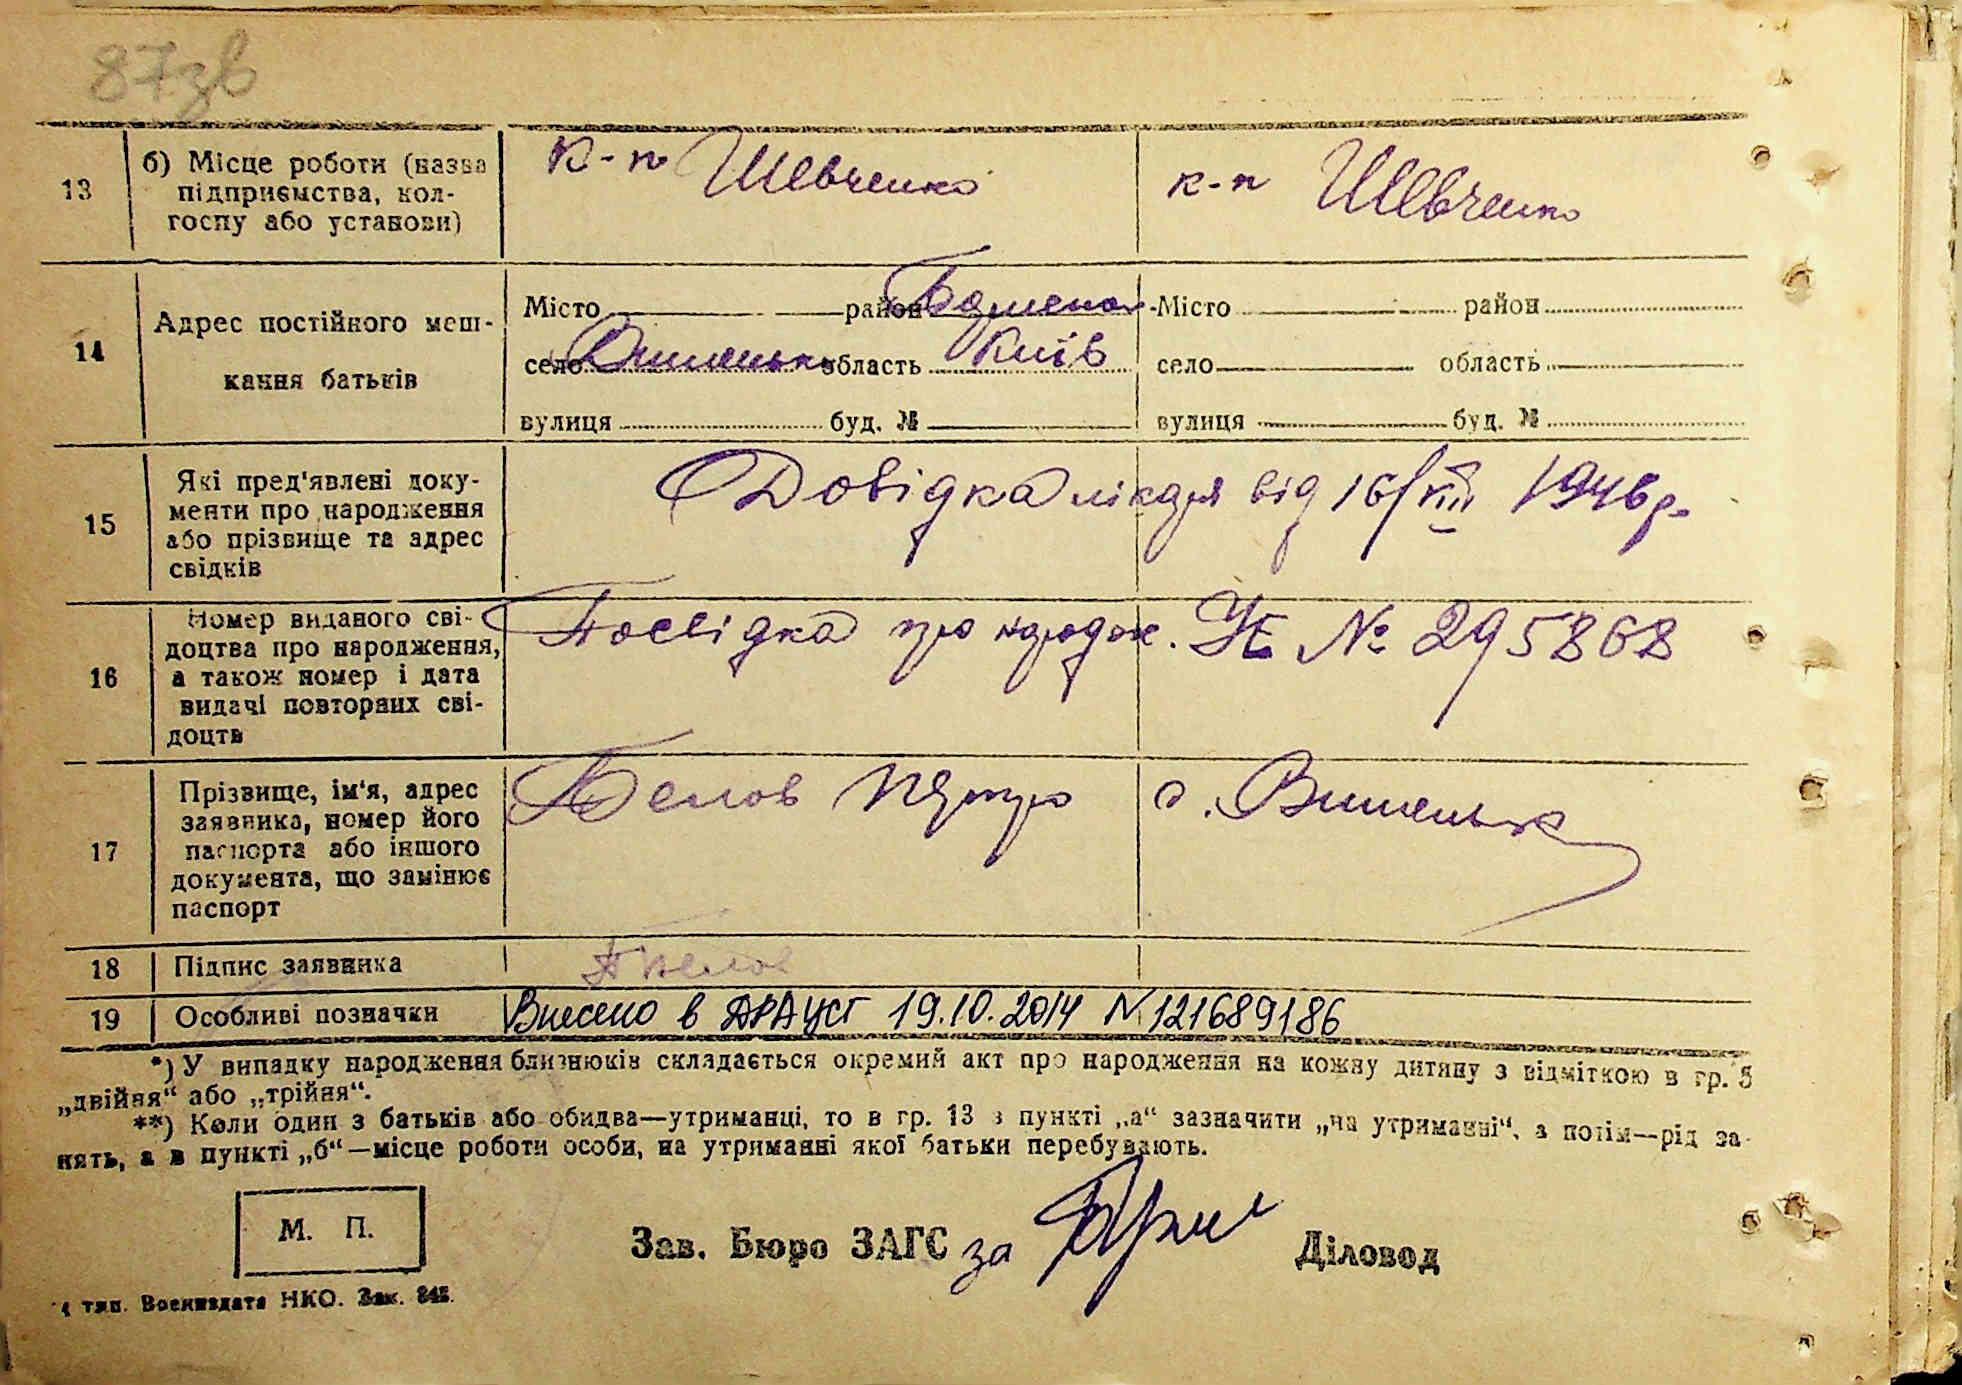 87зв
13
б) Місце роботи (назва
підприємства, кол-
госпу або установи)
к-п Шевченко
к-п Шевченко
14
Адрес постійного меш-
кання батьків
Місто район
село область Київ
вулиця буд. №
Місто район
село область
вулиця буд. №
15
Які пред'явлені доку-
менти про народження
або прізвище та адрес
свідків
Довідка лікаря від 16/XIII 1946 р.
16
Номер виданого сві-
доцтва про народження,
а також номер і дата
видачі повторних сві-
доцтв
Посвідка про народж. УБ № 295868
17
Прізвище, ім'я, адрес
заявника, номер його
паспорта або іншого
документа, що замінює
паспорт
Белов с. Вишеньк
18
Підпис заявника
Белов
19
Особливі позначки
Внесено в ДРАЦСГ 19.10.2014 N 121689186
*) У випадку народження близнюків складається окремий акт про народження на кожну дитину з відміткою в гр. 5
„двійня“ або „трійня“.
**) Коли один з батьків або обидва—утриманці, то в гр. 13 з пункті „а“ зазначити „на утриманні“, а потім—рід за-
нять, а в пункті „б“—місце роботи особи, на утриманні якої батьки перебувають.
М. П.
Зав. Бюро ЗАГС за
Діловод
тип. Воениздата НКО. Зак. 845.